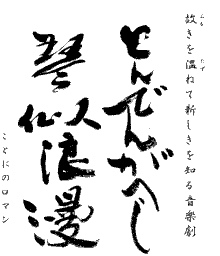 故きを温ねて新しきを知る音楽劇
とんでんがへし
琴似浪漫
ことにのロマン